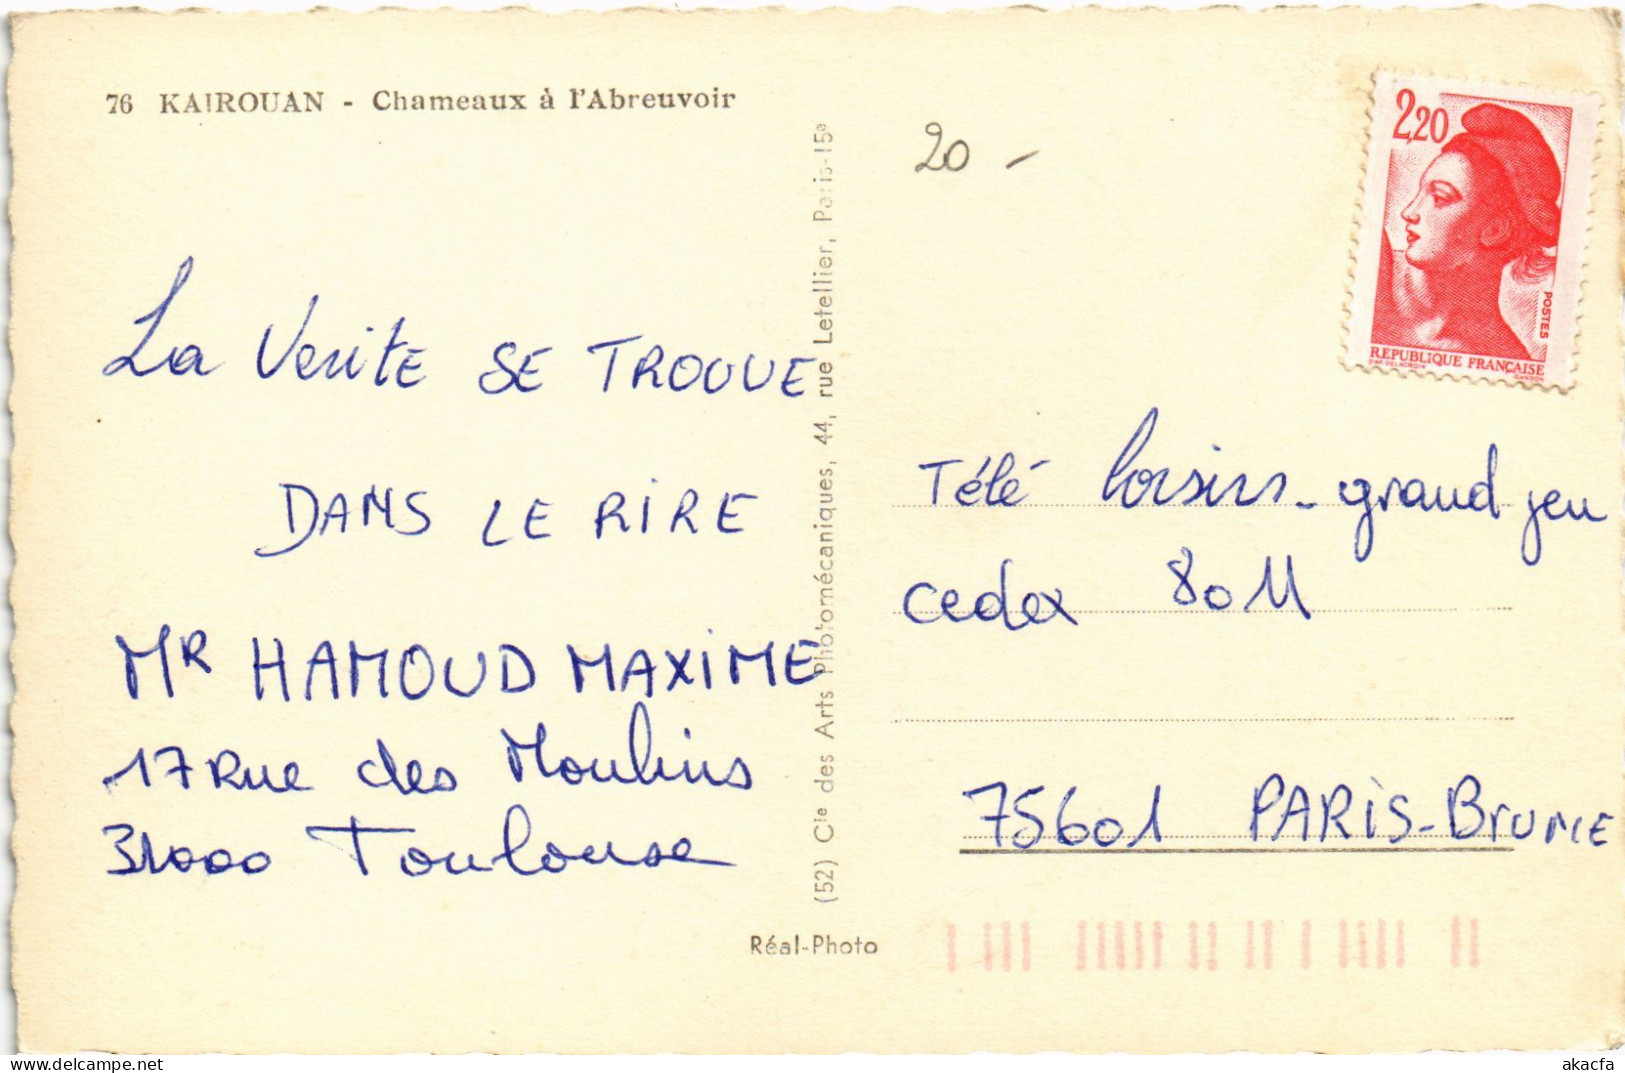 76 KAIROUAN - Chameaux à l'Abreuvoir
20 -
2,20
POSTES
REPUBLIQUE FRANÇAISE
D'AP. DELACROIX
GANDON
La Verite SE TROUVE
DANS LE RIRE
MR HAMOUD MAXIME
17 Rue des Moulins
31000 Toulouse
(52) Cie des Arts Photomécaniques, 44, rue Letellier, Paris-15e
Réal-Photo
Télé loisirs - grand jeu
cedex 80 M
75601 PARIS-BrUNE
akacfa